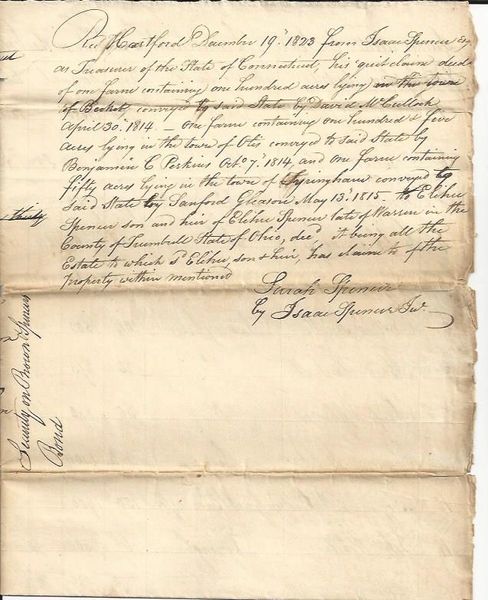 Rec'd Hartford December 19th 1823 from Isaac Spencer Esq
as Treasurer of the State of Connecticut, his quit claim deed
of one farm containing one hundred acres lying in the town
of Becket conveyed by said State by David McCullock
April 30th 1814 — One farm containing one hundred & five
acres lying in the town of Otis conveyed to said State by
Benjamin C Perkins Octo. 7th 1814, and one farm containing
fifty acres lying in the town of Tyringham conveyed to
said State by Sanford Gleason May 13th 1815 to Elihu
Spencer son and heir of Elihu Spencer late of Warren in the
County of Trumbull State of Ohio, dec'd it being all the
Estate to which sd Elihu, son & heir, has claim to of the
property within mentioned
Sarah Spencer
by Isaac Spencer Jur.
thirty
Security on Brown & Spencers
Bond